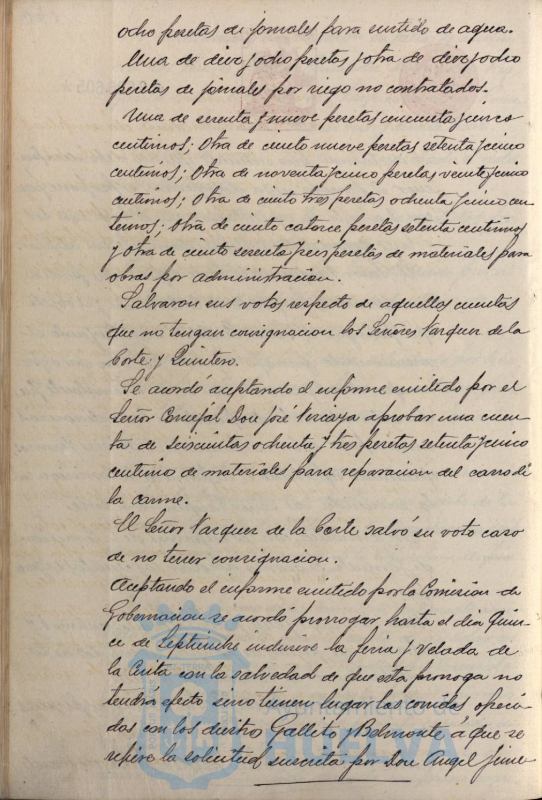 ocho pesetas de jornales para surtido de agua.
Una de diez y ocho pesetas y otra de diez y ocho
pesetas de jornales por riego no contratados.
Una de sesenta y nueve pesetas cincuenta y cinco
centimos; Otra de ciento nueve pesetas setenta y cinco
centimos; Otra de noventa y cinco pesetas veinte y cinco
centimos; Otra de ciento tres pesetas ochenta y cinco cen
timos; otra de ciento catorce pesetas setenta centimos
y otra de ciento sesenta y seis pesetas de materiales para
obras por administracion.
Salvaron sus votos respecto de aquellos cuentas
que no tengan consignacion los Señores Vazquez de la
Corte y Quintero.
Se acordo aceptando el informe emitido por el
Señor Concejal Don José Vizcaya aprobar una cuen
ta de seiscientas ochenta y tres pesetas setenta y cinco
centimo de materiales para reparacion del carro de
la carne.
El Señor Vazquez de la Corte salvó su voto caso
de no tener consignacion.
Aceptando el informe emitido por la Comision de
Gobernacion se acordó prorrogar hasta el dia Quin-
ce de Septiembre inclusive la feria y Velada de
la Cinta con la salvedad de que esta proroga no
tendrá efecto sino tienen lugar las corridas ofreci
das con los diestros Gallito y Belmonte, á que se
refiere la solicitud suscrita por Don Angel Jime
Ayuntamiento de
HUELVA